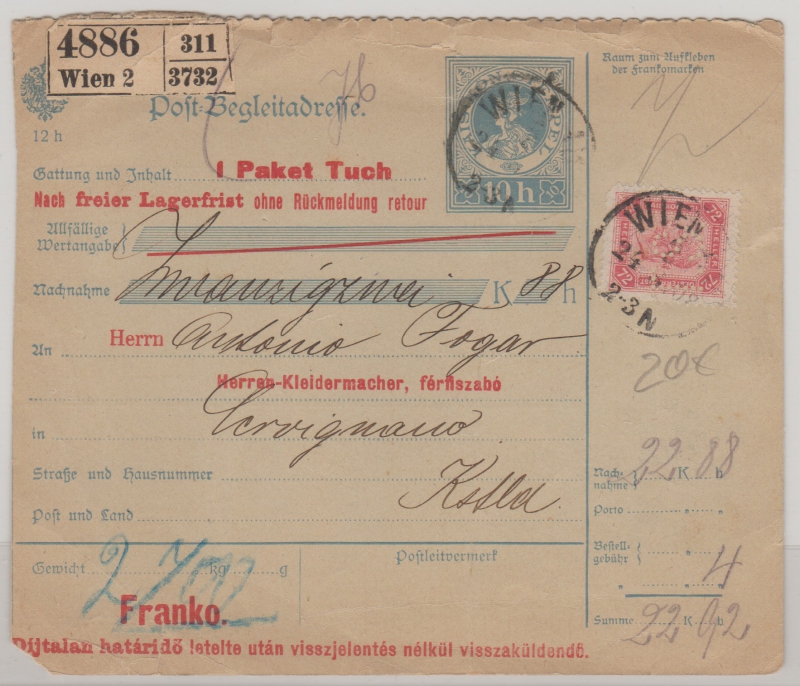 4886 311
Wien 2 3732
Post-Begleitadresse.
12 h
76
Raum zum Aufkleben
der Frankomarken
10 h
WIEN
24
2-3N
72 HELLER 72
WIEN
24
2-3N
Gattung und Inhalt 1 Paket Tuch
Nach freier Lagerfrist ohne Rückmeldung retour
Allfällige
Wertangabe
Nachnahme Zwanzigzwei K 88 h
An Herrn Antonio Fogar
Herren-Kleidermacher, férfiszabó
in Cervignano
Straße und Hausnummer
Post und Land Kstld
20€
Nach-
nahme 22 K 88 h
Porto
Bestell-
gebühr
4
Summe 22 K 92 h
Gewicht 2 700 kg g
Postleitvermerk
Franko.
Díjtalan határidő letelte után visszjelentés nélkül visszaküldendő.